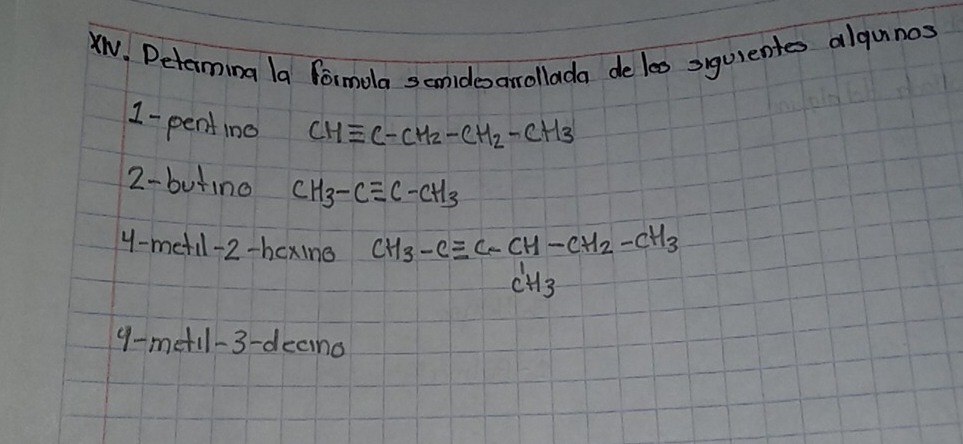 XIV. Determina la fórmula semidesarrollada de los siguientes alquinos
1-pentino CH≡C-CH2-CH2-CH3
2-butino CH3-C≡C-CH3
4-metil-2-hexino CH3-C≡C-CH-CH2-CH3
CH3
4-metil-3-decino